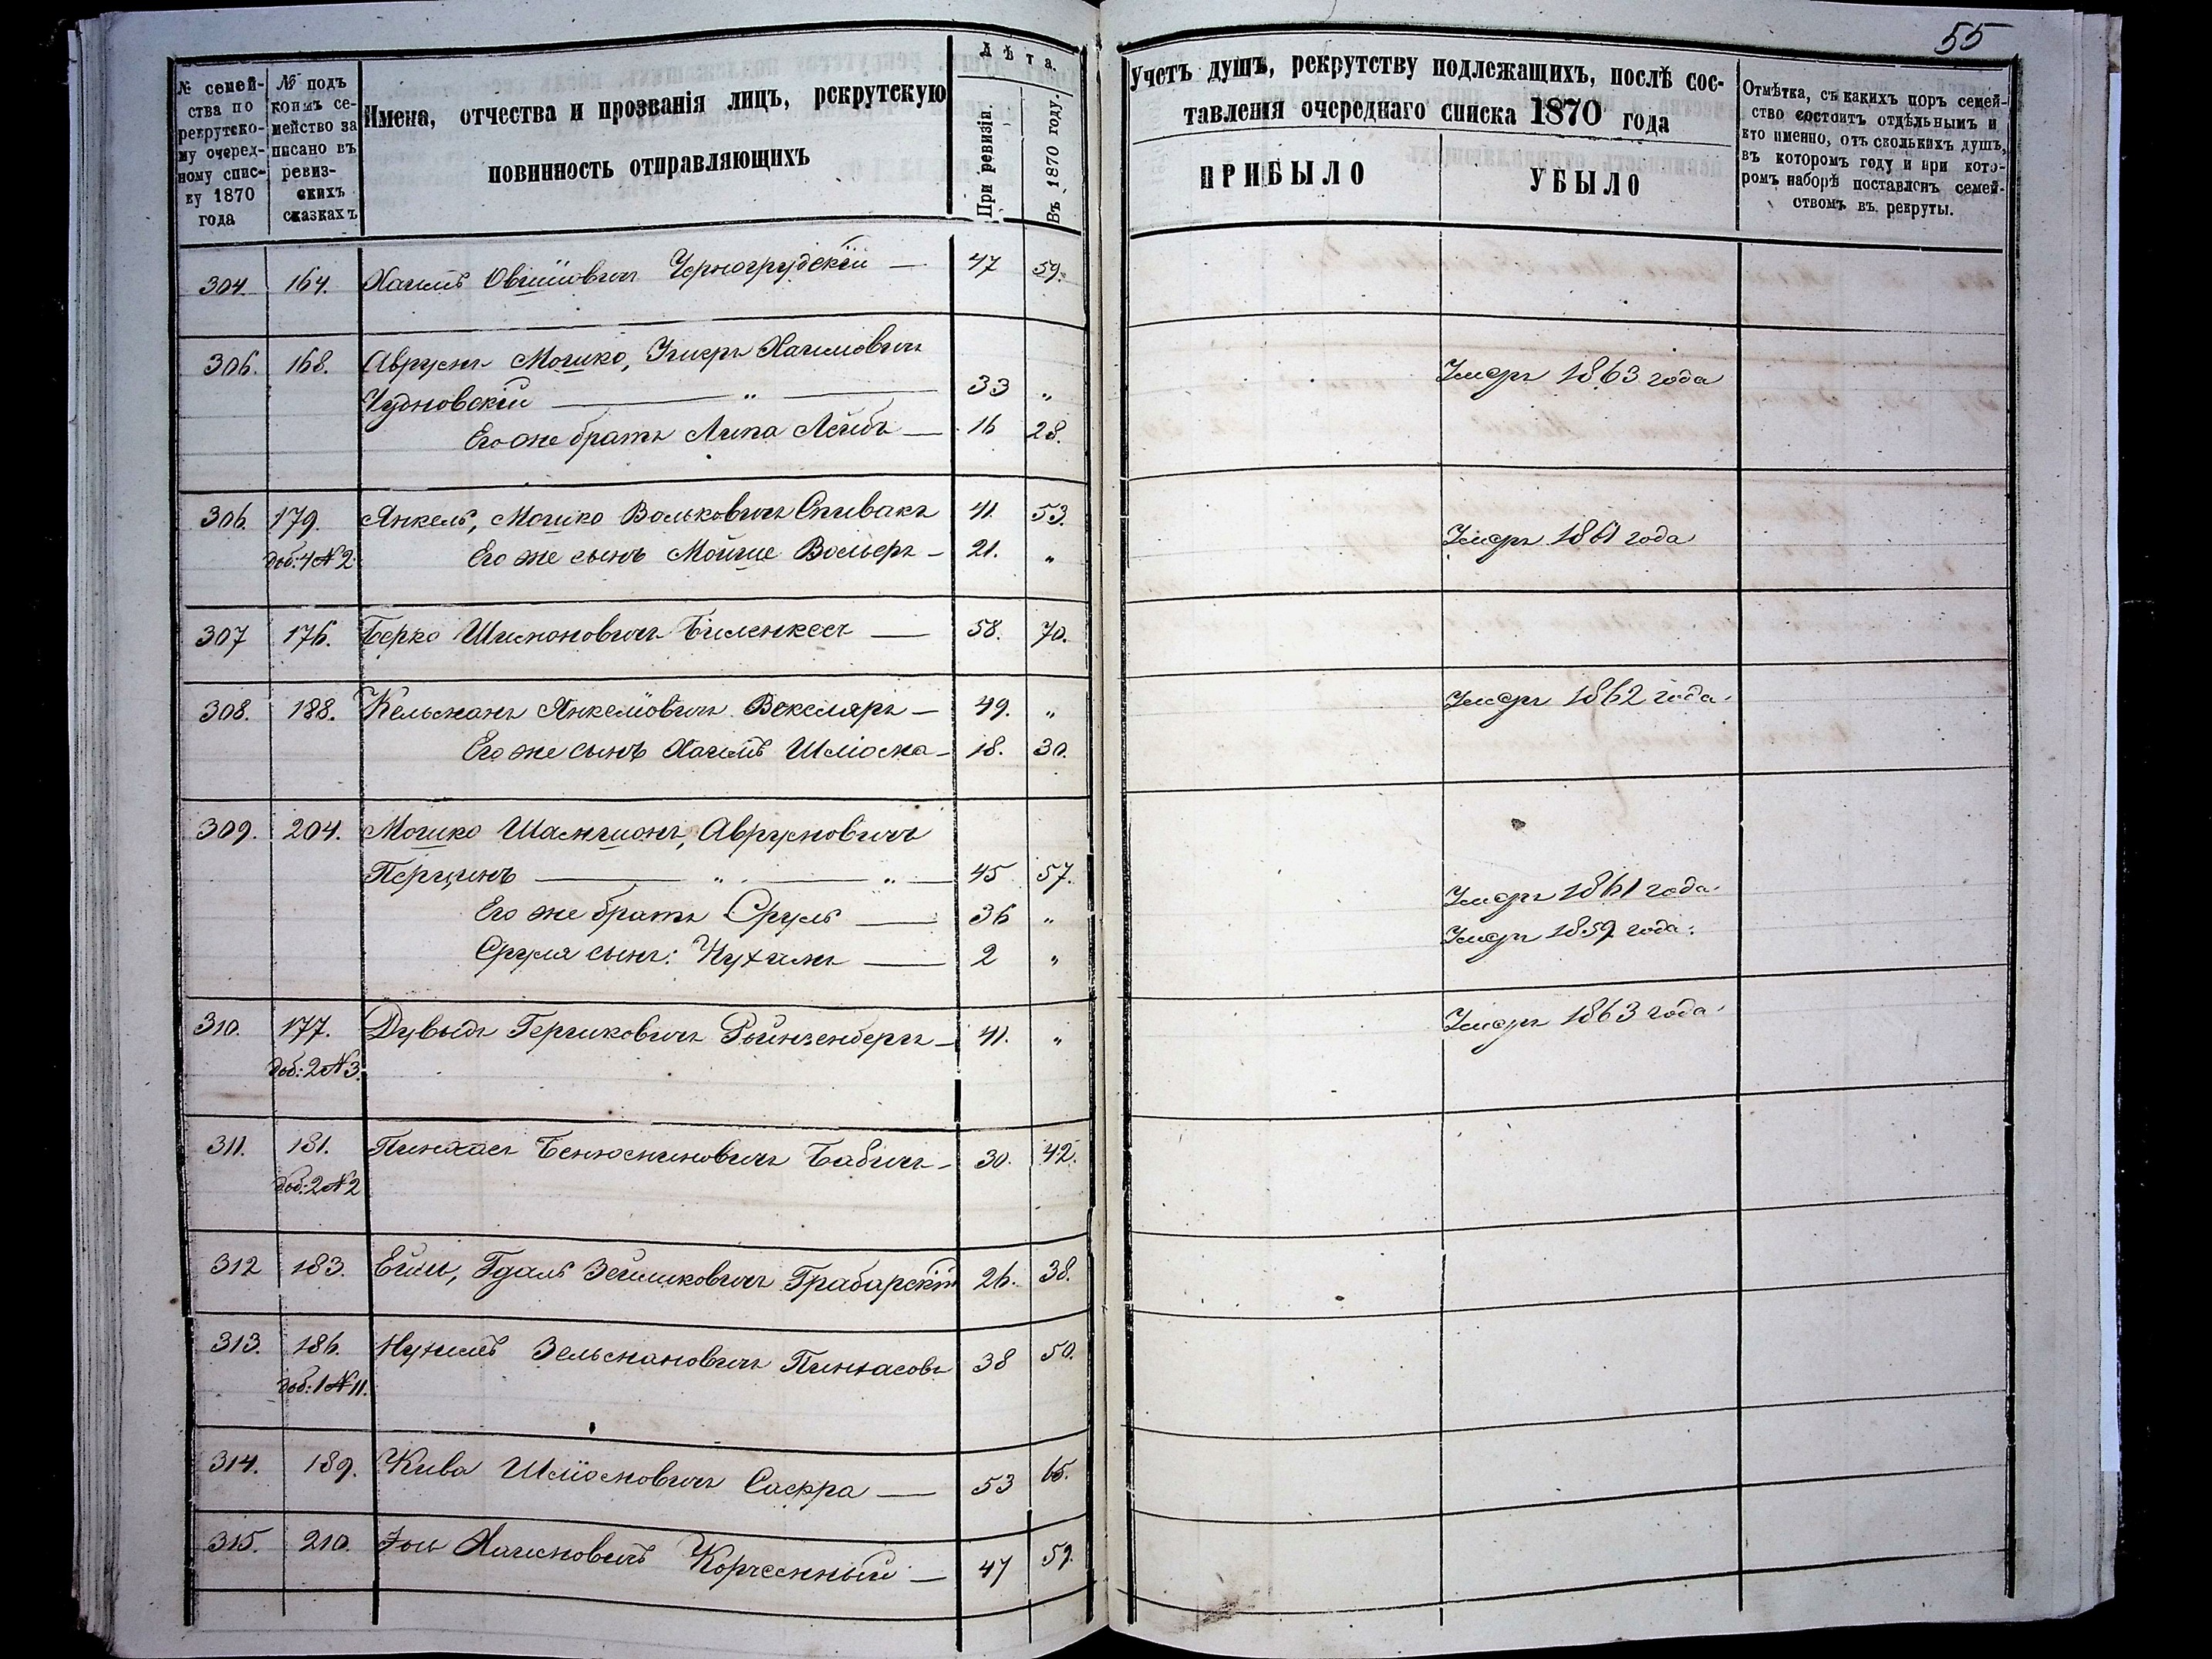 55
№ семей-
ства по
рекрутско-
му очеред-
ному спис-
ку 1870
года
№ подъ
коимъ се-
мейство за
писано въ
ревиз-
скихъ
сказкахъ
Имена, отчества и прозванія лицъ, рекрутскую
повинность отправляющихъ
Лѣта.
При ревизіи.
Въ 1870 году.
Учетъ душъ, рекрутству подлежащихъ, послѣ сос-
тавленія очереднаго списка 1870 года
ПРИБЫЛО
УБЫЛО
Отмѣтка, съ какихъ поръ семей-
ство состоитъ отдѣльнымъ и
кто именно, отъ сколькихъ душъ,
въ которомъ году и при кото-
ромъ наборѣ поставленъ семей-
ствомъ въ рекруты.
304. 164. Хаимъ Овшіовичъ Черногрудскій — 47 59.
306. 168. Аврумъ Мошко, Эшеръ Хаимовичъ
Чудновскій — " — 33 " Умеръ 1863 года
Его же братъ Липа Лейбъ — 16 28.
306. 179. Янкель, Мошко Вольковичъ Спивакъ 41. 53.
доб: 4 № 2. Его же сынъ Мойше Вольеръ — 21. " Умеръ 1861 года
307 176. Берко Шимоновичъ Биленкесъ — 58. 70.
308. 188. Кельманъ Янкеліовичъ Векслярь — 49. " Умеръ 1862 года.
Его же сынъ Хаимъ Шліома — 18. 30.
309. 204. Мошко Шамшонъ, Аврумовичъ
Перцинъ — " — " — 45 57.
Его же братъ Сруль — 36 " Умеръ 1861 года.
Сруля сынъ: Нухимъ — 2 " Умеръ 1859 года.
310. 177. Дувыдъ Гершковичъ Ройнзенбергъ — 41. " Умеръ 1863 года.
доб: 2 № 3.
311. 181. Пинхасъ Бенюминовичъ Бабичъ — 30. 42.
доб: 2 № 2
312 183. Ейль, Гдаль Зейликовичъ Грабарскій 26. 38.
313. 186. Нухимъ Зельмановичъ Пинхасовъ 38 50.
доб: 1 № 11.
314. 189. Кива Шліомовичъ Сафра — 53 65.
315. 210. Хаимовичъ Корчемный — 47 59.